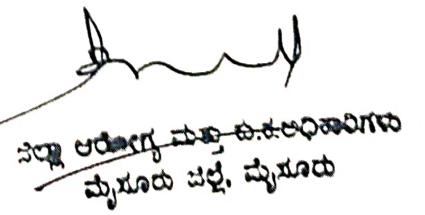 ಜಿಲ್ಲಾ ಆರೋಗ್ಯ ಮತ್ತು ಕು.ಕ.ಅಧಿಕಾರಿಗಳು
ಮೈಸೂರು ಜಿಲ್ಲೆ, ಮೈಸೂರು